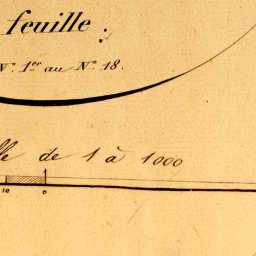 feuille.
N.° 1.er au N.° 18.
de 1 à 1000
10 0